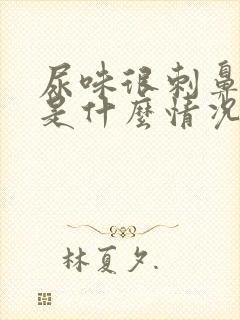 尿味很刺鼻
是什麼情況
林夏夕.